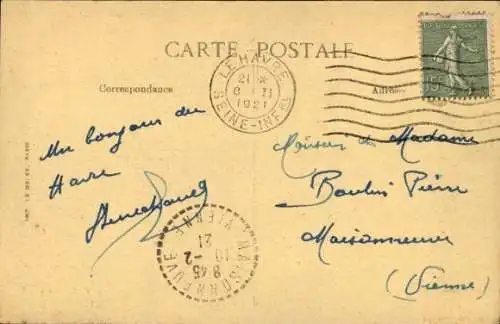 CARTE POSTALE
Correspondance
LE HAVRE
21 *
8 II
1921
SEINE-INFRE
15c
Un bonjour du
Havre
Monsieur et Madame
Boulin Pierre
Maisonneuve
(Vienne)
MAISONNEUVE
9 45
10 -2
21
VIENNE